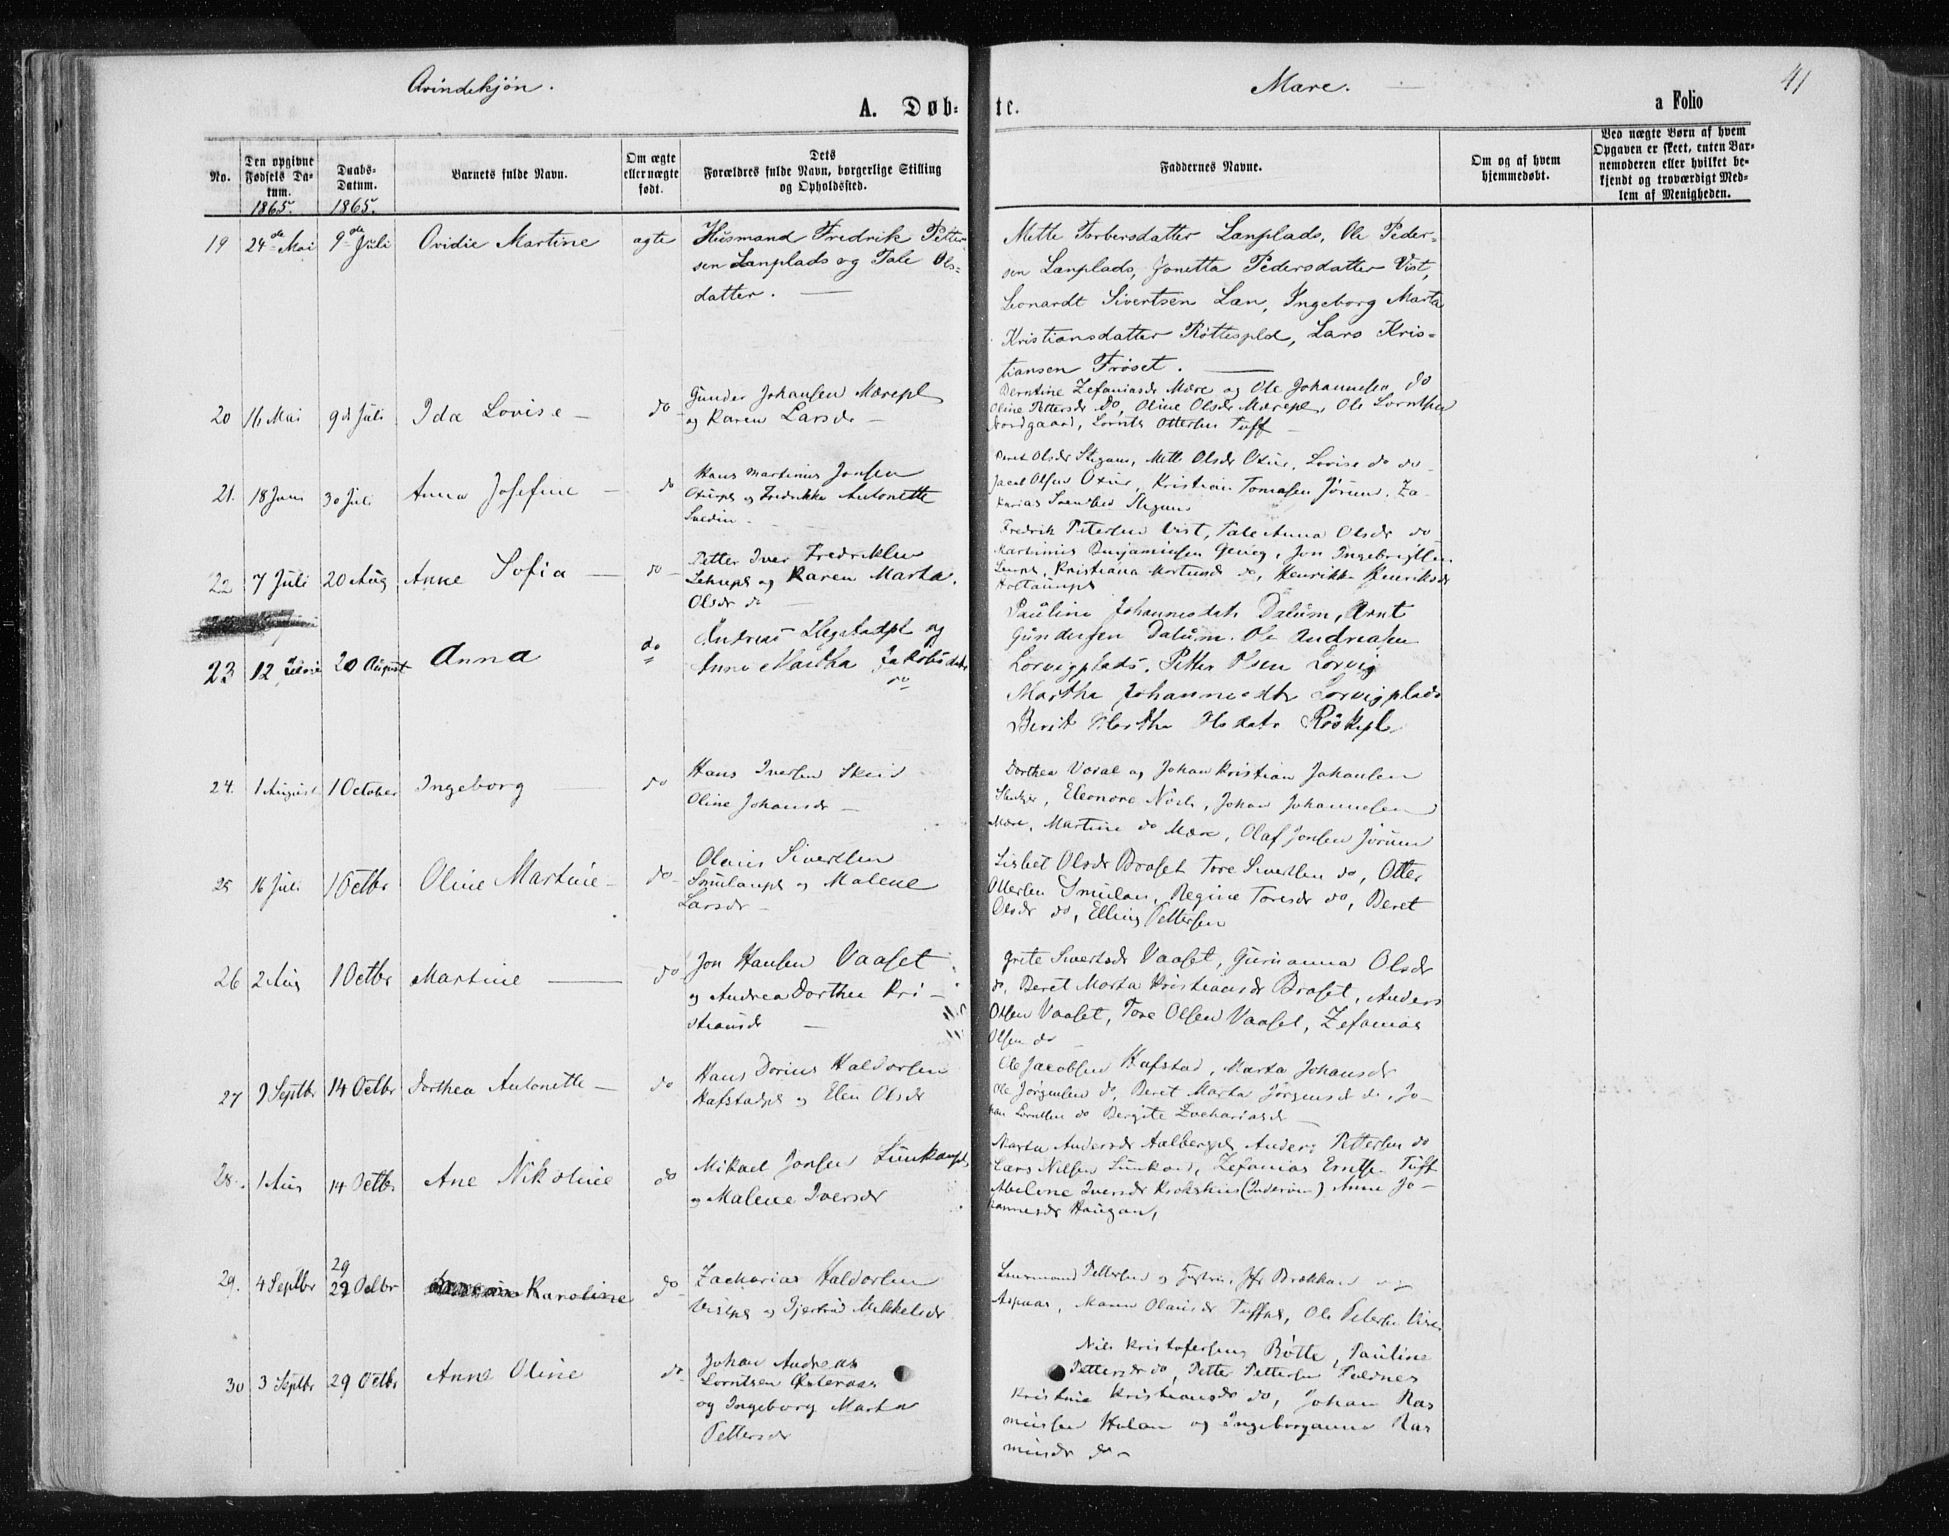 Qvindekjøn.
Mære.
41
A. Døb-
te.
a Folio
No.
Den opgivne Fødsels Da-tum.
1865.
Daabs-Datum.
1865.
Barnets fulde Navn.
Om ægte eller nægte født.
Dets Forældres fulde Navn, borgerlige Stilling og Opholdssted.
Faddernes Navne.
Om og af hvem hjemmedøbt.
Ved nægte Børn af hvem Opgaven er skeet, enten Bar-nemoderen eller hvilket be-kjendt og troværdigt Med-lem af Menigheden.
19 24de Mai 9de Juli Ovidie Martine ægte Husmand Fredrik Petter-
sen Lænplads og Tale Ols-
datter. —
Mette Torbersdatter Lænplads, Ole Peder-
sen Lænplads, Jonetta Pedersdatter Vist,
Leonardt Sivertsen Læn, Ingeborg Marta
Kristiansdatter Røttespld, Lars Kris-
tiansen Frøset. —
20 16 Mai 9de Juli Ida Lovise — do Gunder Johansen Mærepl
og Karen Larsdr —
Berntine Zefaniasdr Mære og Ole Johannesen do
Oline Pettersdr do, Oline Olsdr Mærepl, Ole Lorntsen
Nordgaard, Lornts Ottersen Tuff —
21. 18 Juni 30 Juli Anna Josefine — do Hans Martinius Jonsen
og Fredrikke Antonette
Beret Olsdr Mette Olsdr Oxur, Lovise do do
Jacob Olsen Oxur, Kristian Tomasen Jørum, Za-
karias
22 7 Juli 20 Aug Anne Sofia — do — Petter Iver Fredriksen
og Karen Marta
Olsdr do —
Fredrik Petersen Vist, Tale Anna Olsdr do
Martinius Benjaminsen Jon Ingebrigtsen
Kristiana do, Henrikke Henriksdr
23 12 20 August Anna do Andreas Hegstadpl og
Anne Martha Jakobsdatr
do
Pauline Johannesdatr Dalum, Arnt
Gundersen Dalum. Ole Andreasen
Lorvigplads, Petter Olsen Lorvig
Martha Johannesdtr Lorvigplads
Berit Martha
24. 1 August 1 October Ingeborg — do Hans Iversen Skei
Oline Johansdr —
Dorthea Voral og Johan Kristian Johansen
Eleonore Johan Johannesen
Mære, Martine do Mære, Olaf Jonsen Jørum
25 16 Juli 1 Octbr Oline Martine — do — Olaus Sivertsen
Smulanpl og Malene
Larsdr —
Lisbet Olsdr Braset Tore Sivertsen do, Otter
Ottersen Smulan, Regine Toresdr do, Beret
Olsdr do, Elling Pettersen
26 2 Aug 1 Octbr Martine — do Jon Hansen Vaaset
og Andrea Dorthea Kri-
stiansdr —
Grete Sivertsdr Vaaset, Gurianna Olsdr
do, Beret Marta Kristiansdr Braset, Anders
Olsen Vaaset, Tore Olsen Vaaset, Zefanias
Olsen do
27 9 Septbr 14 Octbr Dorthea Antonette — do Hans Dorius Haldorsen
Hafstadpl og Elen Olsdr
Ole Jacobsen Hafstad, Marta Johansdr
Ole Jørgensen do, Beret Marta Jørgensdr do, Jo-
han Lorntsen do Bergite Zachariasdr —
28. 1 Aug 14 Octbr Ane Nikoline do Mikael Jonsen Lunkanpl
og Malene Iversdr
Marta Andersdr Aalbergpl Anders Pettersen do
Lars Nilsen Lunkan, Zefanias Tuft
Abelene Iversdr Krokshus (Inderøen) Anne Jo-
hannesdr Haugan,
29. 4 Septbr 29 29 Octbr Karoline do Zacharias Haldorsen
Vistpl og Gjertrud Mikkelsdr
Pettersen og
Aspaas, Maren Olausdr Ole Petersen Vist
30 3 Septbr 29 Octbr Anne Oline do — Johan Andreas
Lorntsen Østeraas
og Ingeborg Marta
Pettersdr
Nils Kristofersen Røtte, Pauline
Pettersdr do, Petter Pettersen Foldnes
Kristine Kristiansdr do, Johan Ras
mussen Hulan og Ingeboranna Ras
musdr do —